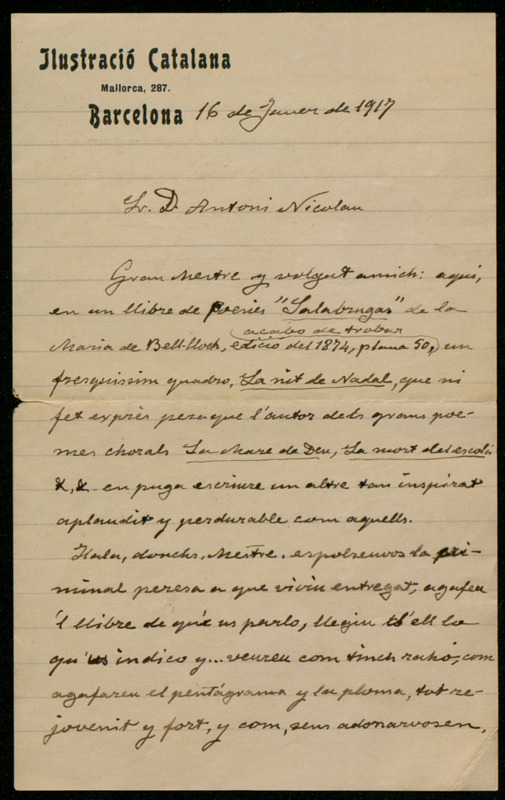 Ilustració Catalana
Mallorca, 287.
Barcelona 16 de Janer de 1917
Sr. D. Antoni Nicolau
Gran Mestre y volgut amich: aquí,
en un llibre de poesies "Salabrugas" de la
acabo de trobar
Maria de Bell-lloch, edició del 1874, plana 50, un
fresquissim quadro, La nit de Nadal, que ni
fet exprés peraque l'autor dels grans poe-
mes chorals La Mare de Deu, La mort del escolá
&, & en puga escriure un altre tan inspirat
aplaudit y perdurable com aquells.
Hala, donchs, Mestre. espolseuvos la
minal peresa a que viviu entregat, agafeu
'l llibre de qué us parlo, llegiu d'ell lo
qu'us indico y... veureu com tinch rahó, com
agafareu el pentágrama y la ploma, tot re-
jovenit y fort, y com, sens adonarvosen,